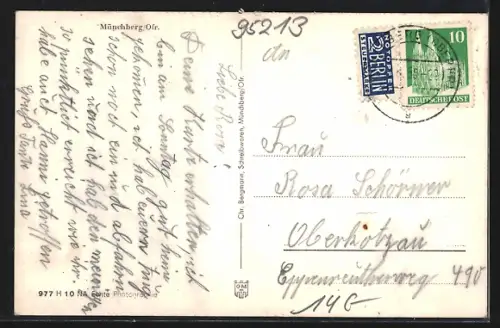 Münchberg/Ofr.
95213
Liebe Rosi!
Deine Karte erhalten ich
bin am Sonntag gut heim
gekommen, ich hab euern Zug
schon noch ein und abfahren
sehen und ich hab den meinigen
so pünktlich erreicht wie ihr.
habe auch Hanna getroffen
Gruß Tante Lina
977 H 10 NA Echte Photographie
Chr. Bergmann, Schreibwaren, Münchberg/Ofr.
An
NOTOPFER
2 BERLIN
STEUERMARKE
10
DEUTSCHE POST
Frau
Rosa Schörner
Oberkotzau
Eppenreutherweg 490
14G